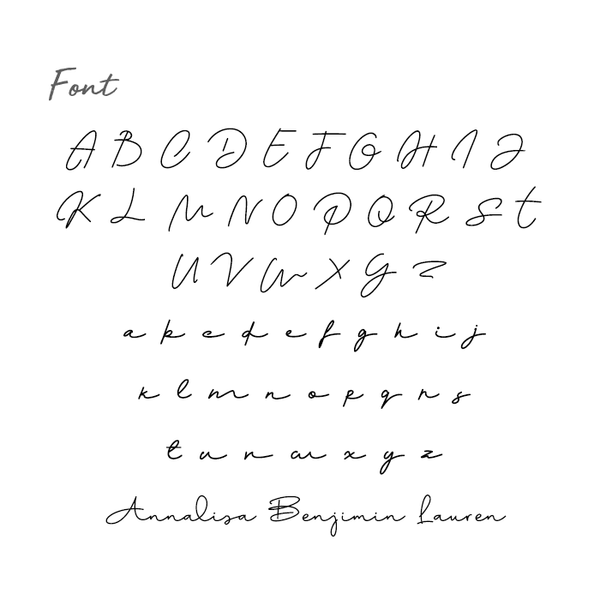 Font
A B C D E F G H I J
K L M N O P Q R S t
U V W X Y Z
a b c d e f g h i j
k l m n o p q r s
t u v w x y z
Annalisa Benjimin Lauren